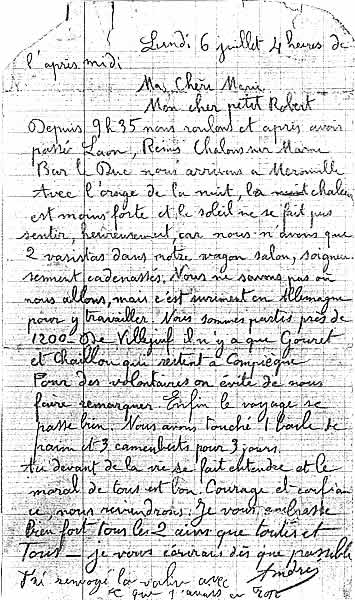 Lundi 6 juillet 4 heures de
l'après midi
Ma Chère Marie
Mon cher petit Robert
Depuis 9h35 nous roulons et après avoir
passé Laon, Reims Chalons sur Marne
Bar le Duc nous arrivons à
Avec l'orage de la nuit, la chaleur
est moins forte et le soleil ne se fait pas
sentir, heureusement car nous n'avons que
2 vasistas dans notre wagon salon, soigneu-
sement cadenassés. Nous ne savons pas où
nous allons, mais c'est surement en Allemagne
pour y travailler. Nous sommes partis près de
1200. De Villejuif il n'y a que Gouret
et Chaillou qui restent à Compiègne
Pour des volontaires on évite de nous
faire remarquer. Enfin le voyage se
passe bien. Nous avons touché 1 boule de
pain et 3 camemberts pour 3 jours.
Au devant de la vie se fait entendre et le
moral de tous est bon. Courage et confian-
ce, nous reviendrons. Je vous embrasse
bien fort tous les 2 ainsi que toutes et
Tous - je vous écrirais dès que possible
J'ai renvoyé la valise avec Andrés
ce que j'avais en